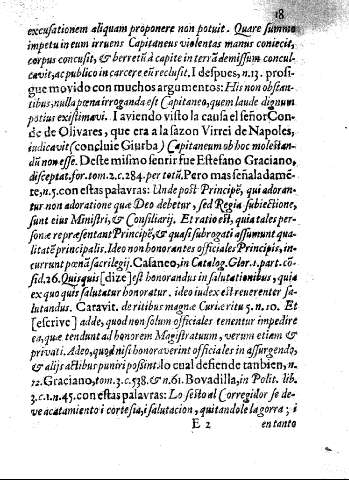 18
excusationem aliquam proponere non potuit. Quare summo
impetu in eum irruens Capitaneus violentas manus coniecit,
corpus concusit, & berretū à capite in terrā demissum concul-
cavit, ac publico in carcere eū reclusit. I despues, n.13. prosi-
gue movido con muchos argumentos: His non obstan-
tibus, nulla pœna irroganda est Capitaneo, quem laude dignum
potius existimavi. I aviendo visto la causa el señor Con-
de de Olivares, que era a la sazon Virrei de Napoles,
indicavit (concluie Giurba) Capitaneum ob hoc molestan-
dū non esse. Deste mismo sentir fue Estefano Graciano,
disceptat. for. tom.2.c.284. per totū. Pero mas señaladamē-
te, n.5. con estas palabras: Unde post Principē, qui adoran-
tur non adoratione quæ Deo debetur, sed Regia subiectione,
sunt eius Ministri, & Consiliarij. Et ratio est, quia tales per-
sonæ repræsentant Principē, & quasi subrogati assumunt qua-
litatē principalis. Ideo non honorantes officiales Principis, in-
currunt pœnā sacrilegij. Casaneo, in Catalog. Glor. 1. part. cō-
sid. 26. Quisquis [dize] est honorandus in salutationibus, quia
ex quo quis salutatur honoratur. ideo iudex est reverenter sa-
lutandus. Caravit. de ritibus magnæ Curiæ ritu 5. n.10. Et
[escrive] adde, quod non solum officiales tenentur impedire
ea, quæ tendunt ad honorem Magistratuum, verum etiam &
privati. Adeo, quod nisi honoraverint officiales in assurgendo,
& alijs actibus puniri possint. lo cual defiende tanbien, n.
12. Graciano, tom.3.c.538. & n.61. Bovadilla, in Polit. lib.
3.c.1.n.45. con estas palabras: Lo sesto al Corregidor se de-
ve acatamiento i cortesia, i salutacion, quitandole la gorra; i
E 2 en tanto